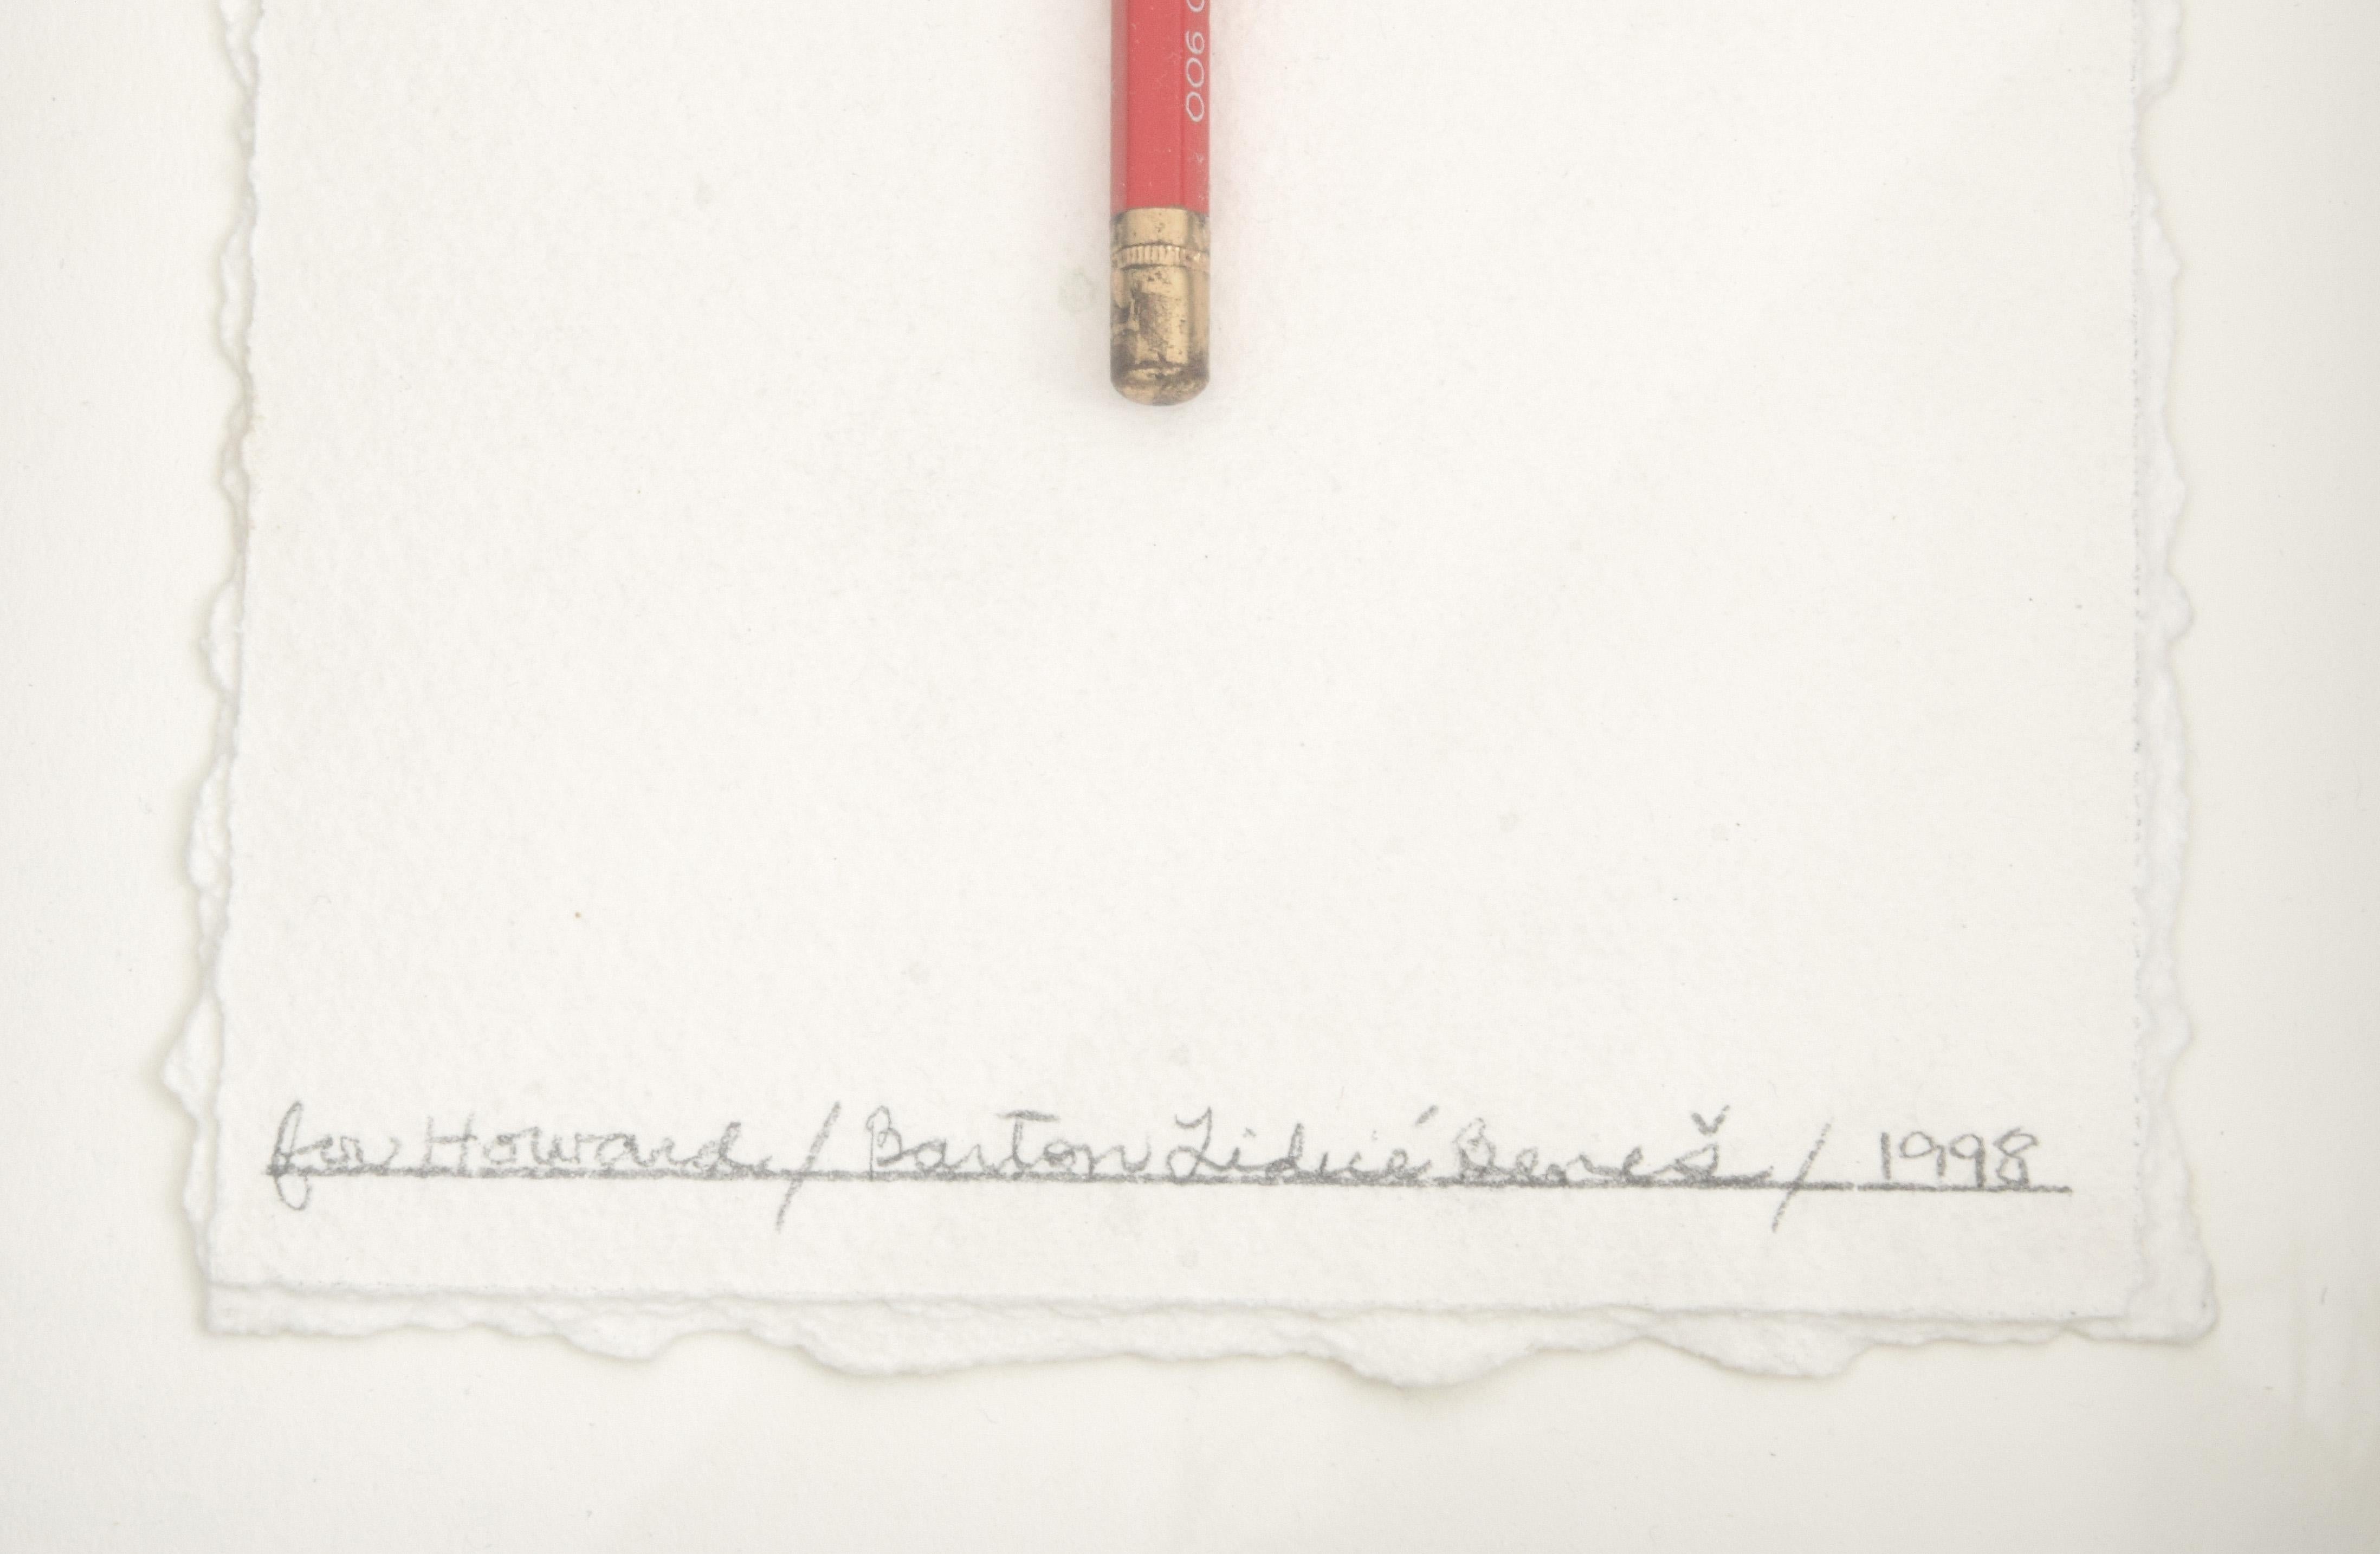 006
for Howard / Barton Lidicé Beneš / 1998